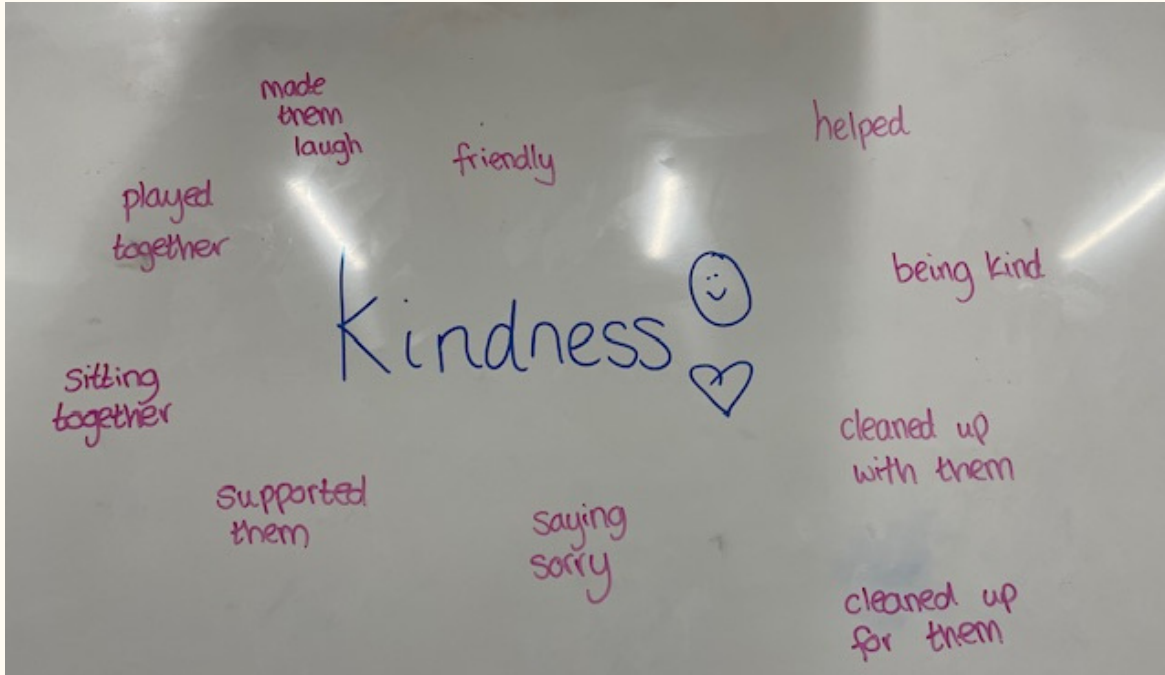 made
them
laugh
friendly
helped
played
together
being kind
Kindness
sitting
together
cleaned up
with them
supported
them
saying
sorry
cleaned up
for them